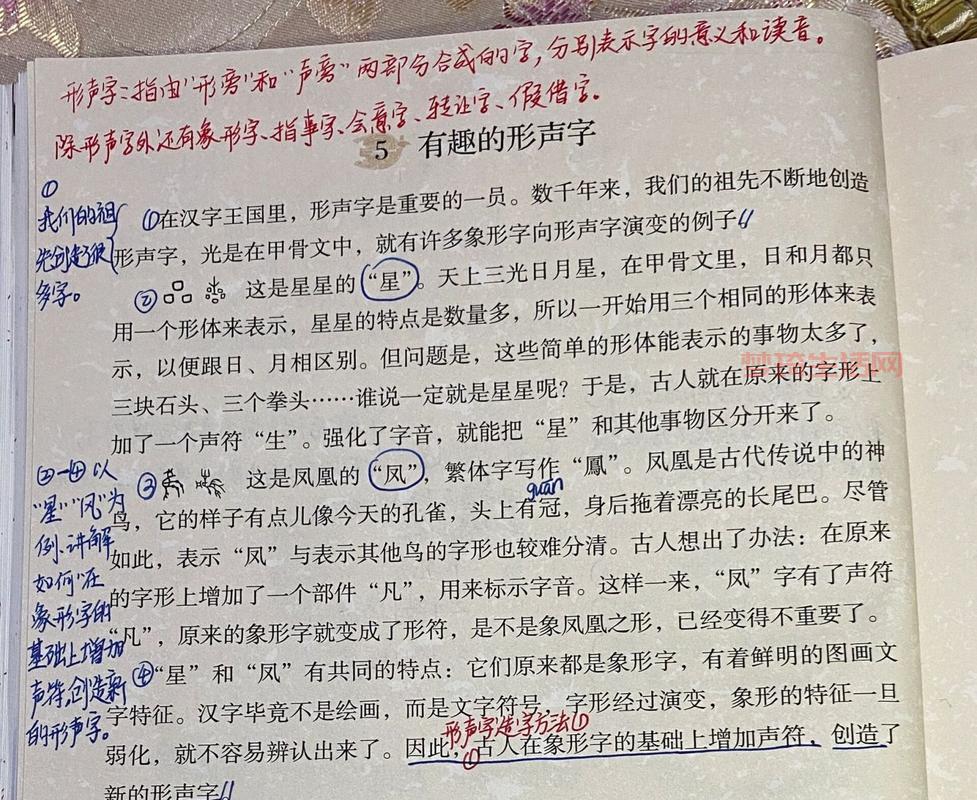 形声字:指由"形旁"和"声旁"两部分合成的字,分别表示字的意义和读音。
除形声字外还有象形字、指事字、会意字、转注字、假借字。
5 有趣的形声字
①
我们的祖
先创造了很
多字。
①在汉字王国里，形声字是重要的一员。数千年来，我们的祖先不断地创造
形声字，光是在甲骨文中，就有许多象形字向形声字演变的例子。
② 这是星星的“星”。天上三光日月星，在甲骨文里，日和月都只
用一个形体来表示，星星的特点是数量多，所以一开始用三个相同的形体来表
示，以便跟日、月相区别。但问题是，这些简单的形体能表示的事物太多了，
三块石头、三个拳头……谁说一定就是星星呢？于是，古人就在原来的字形上
加了一个声符“生”。强化了字音，就能把“星”和其他事物区分开来了。
②—④以
"星""凤"为
例,讲解
如何在
象形字的
基础上增加
声符,创造新
的形声字。
③ 这是凤凰的“凤”，繁体字写作“鳳”。凤凰是古代传说中的神
guān
鸟，它的样子有点儿像今天的孔雀，头上有冠，身后拖着漂亮的长尾巴。尽管
如此，表示“凤”与表示其他鸟的字形也较难分清。古人想出了办法：在原来
的字形上增加了一个部件“凡”，用来标示字音。这样一来，“凤”字有了声符
“凡”，原来的象形字就变成了形符，是不是象凤凰之形，已经变得不重要了。
④“星”和“凤”有共同的特点：它们原来都是象形字，有着鲜明的图画文
字特征。汉字毕竟不是绘画，而是文字符号，字形经过演变，象形的特征一旦
形声字造字方法①
弱化，就不容易辨认出来了。因此，①古人在象形字的基础上增加声符，创造了
新的形声字
梦琦生活网